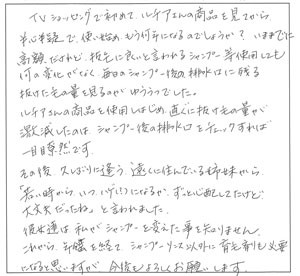 TVショッピングで初めて、ルチアさんの商品を見てから
半信半疑で、使い始めもう何年になるのでしょうか?いままでに
高額だけれど、抜毛に良いと言われるシャンプー等使用しても
何の変化がなく毎日のシャンプー後の排水口に残る
抜け毛の量を見るのがゆううつでした。
ルチアさんの商品を使用しはじめ、直ぐに抜け毛の量が
激減したのは、シャンプー後の排水口をチェックすれば
一目瞭然です。
その後、久しぶりに逢う、遠くに住んでいる姉妹から
「若い時から、いつハゲ!!になるか、ずっと心配してたけど
大丈夫だったね。」と言われました。
彼女達は私がシャンプーを変えた事を知りません。
これから、年齢を経て、シャンプーリンス以外に育毛剤も必要
になると思いますが、今後もよろしくお願いします。